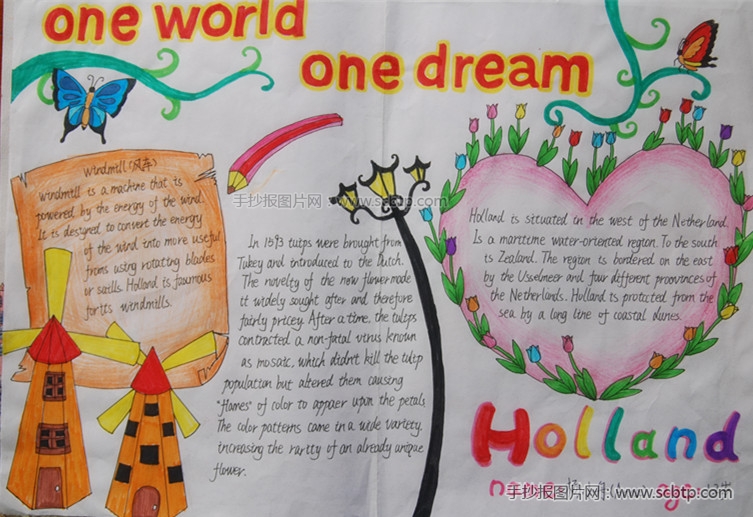 one world
one dream
Windmill (风车)
Windmill is a machine that is
powered by the energy of the wind.
It is designed to convert the energy
of the wind into more useful
from using rotating blades
or saills. Holland is faoumous
for its windmills.
手抄报图片网：www.scbtp.com
In 1593 tulips were brought from
Tukey and introduced to the Dutch.
The novelty of the now flower made
it widely sought after and therefore
fairly pricey. After a time, the tulips
contracted a non-fatal virus known
as mosaic, which didn't kill the tulip
population but altered them causing
"flames" of color to appaer upon the petals.
The color patterns came in a wide variety,
increasing the rarity of an already unique
flower.
Holland is situated in the west of the Netherland.
Is a maritime water-oriented region. To the south
is Zealand. The region is bordered on the east
by the Usselmeer and four different prownces of
the Netherlands. Holland is protected from the
sea by a long line of coastal dunes.
Holland
name
age
手抄报图片网：www.scbtp.com